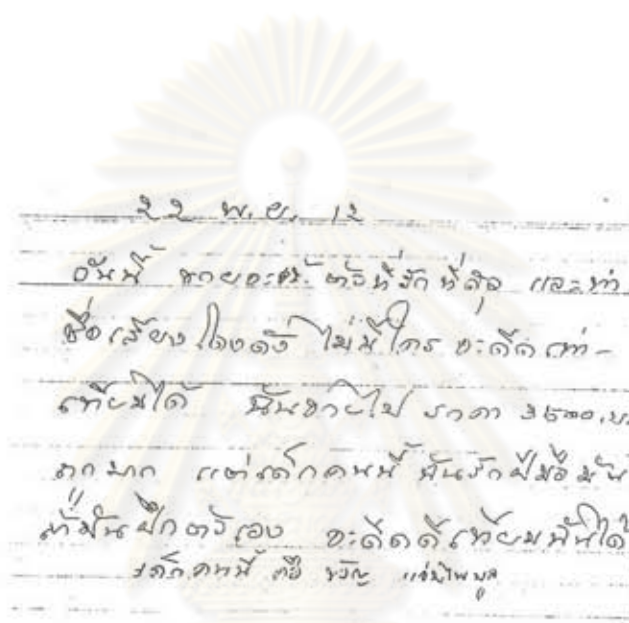 22 พ.ย. 12
วันนี้ ขายจะเข้ ตัวที่รักที่สุด และทำ
ชื่อเสียงโด่งดัง ไม่มีใคร จะดีดเท่า-
เทียมได้ ฉันขายไป ราคา 3500.บ.
ถูกมาก แต่เด็กคนนี้ ฉันรักฝีมือมัน
ถ้ามันฝึกตัวเอง จะดีดดีเทียมฉันได้
เด็กคนนี้ คือ ขวัญ